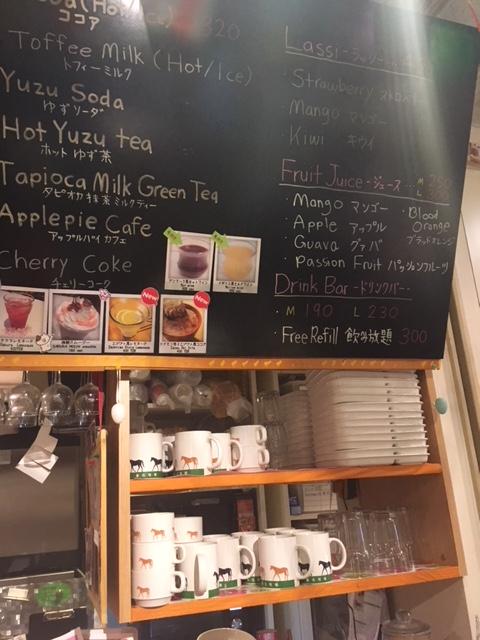 (Hot/Ice) 320
ココア
Toffee Milk (Hot/Ice)
トフィーミルク
Yuzu Soda
ゆずソーダ
Hot Yuzu tea
ホット ゆず茶
Tapioca Milk Green Tea
タピオカ抹茶ミルクティー
Applepie Cafe
アップルパイカフェ
Cherry Coke
チェリーコーク
New
New
Lassi
・Strawberry
・Mango マンゴー
・Kiwi キウイ
Fruit Juice -ジュース- M
L
・Mango マンゴー
・Apple アップル
・Guava グァバ
・Passion Fruit パッションフルーツ
・Blood
Orange
ブラッドオレンジ
Drink Bar -ドリンクバー-
・M 190 L 230
・Free Refill 飲み放題 300